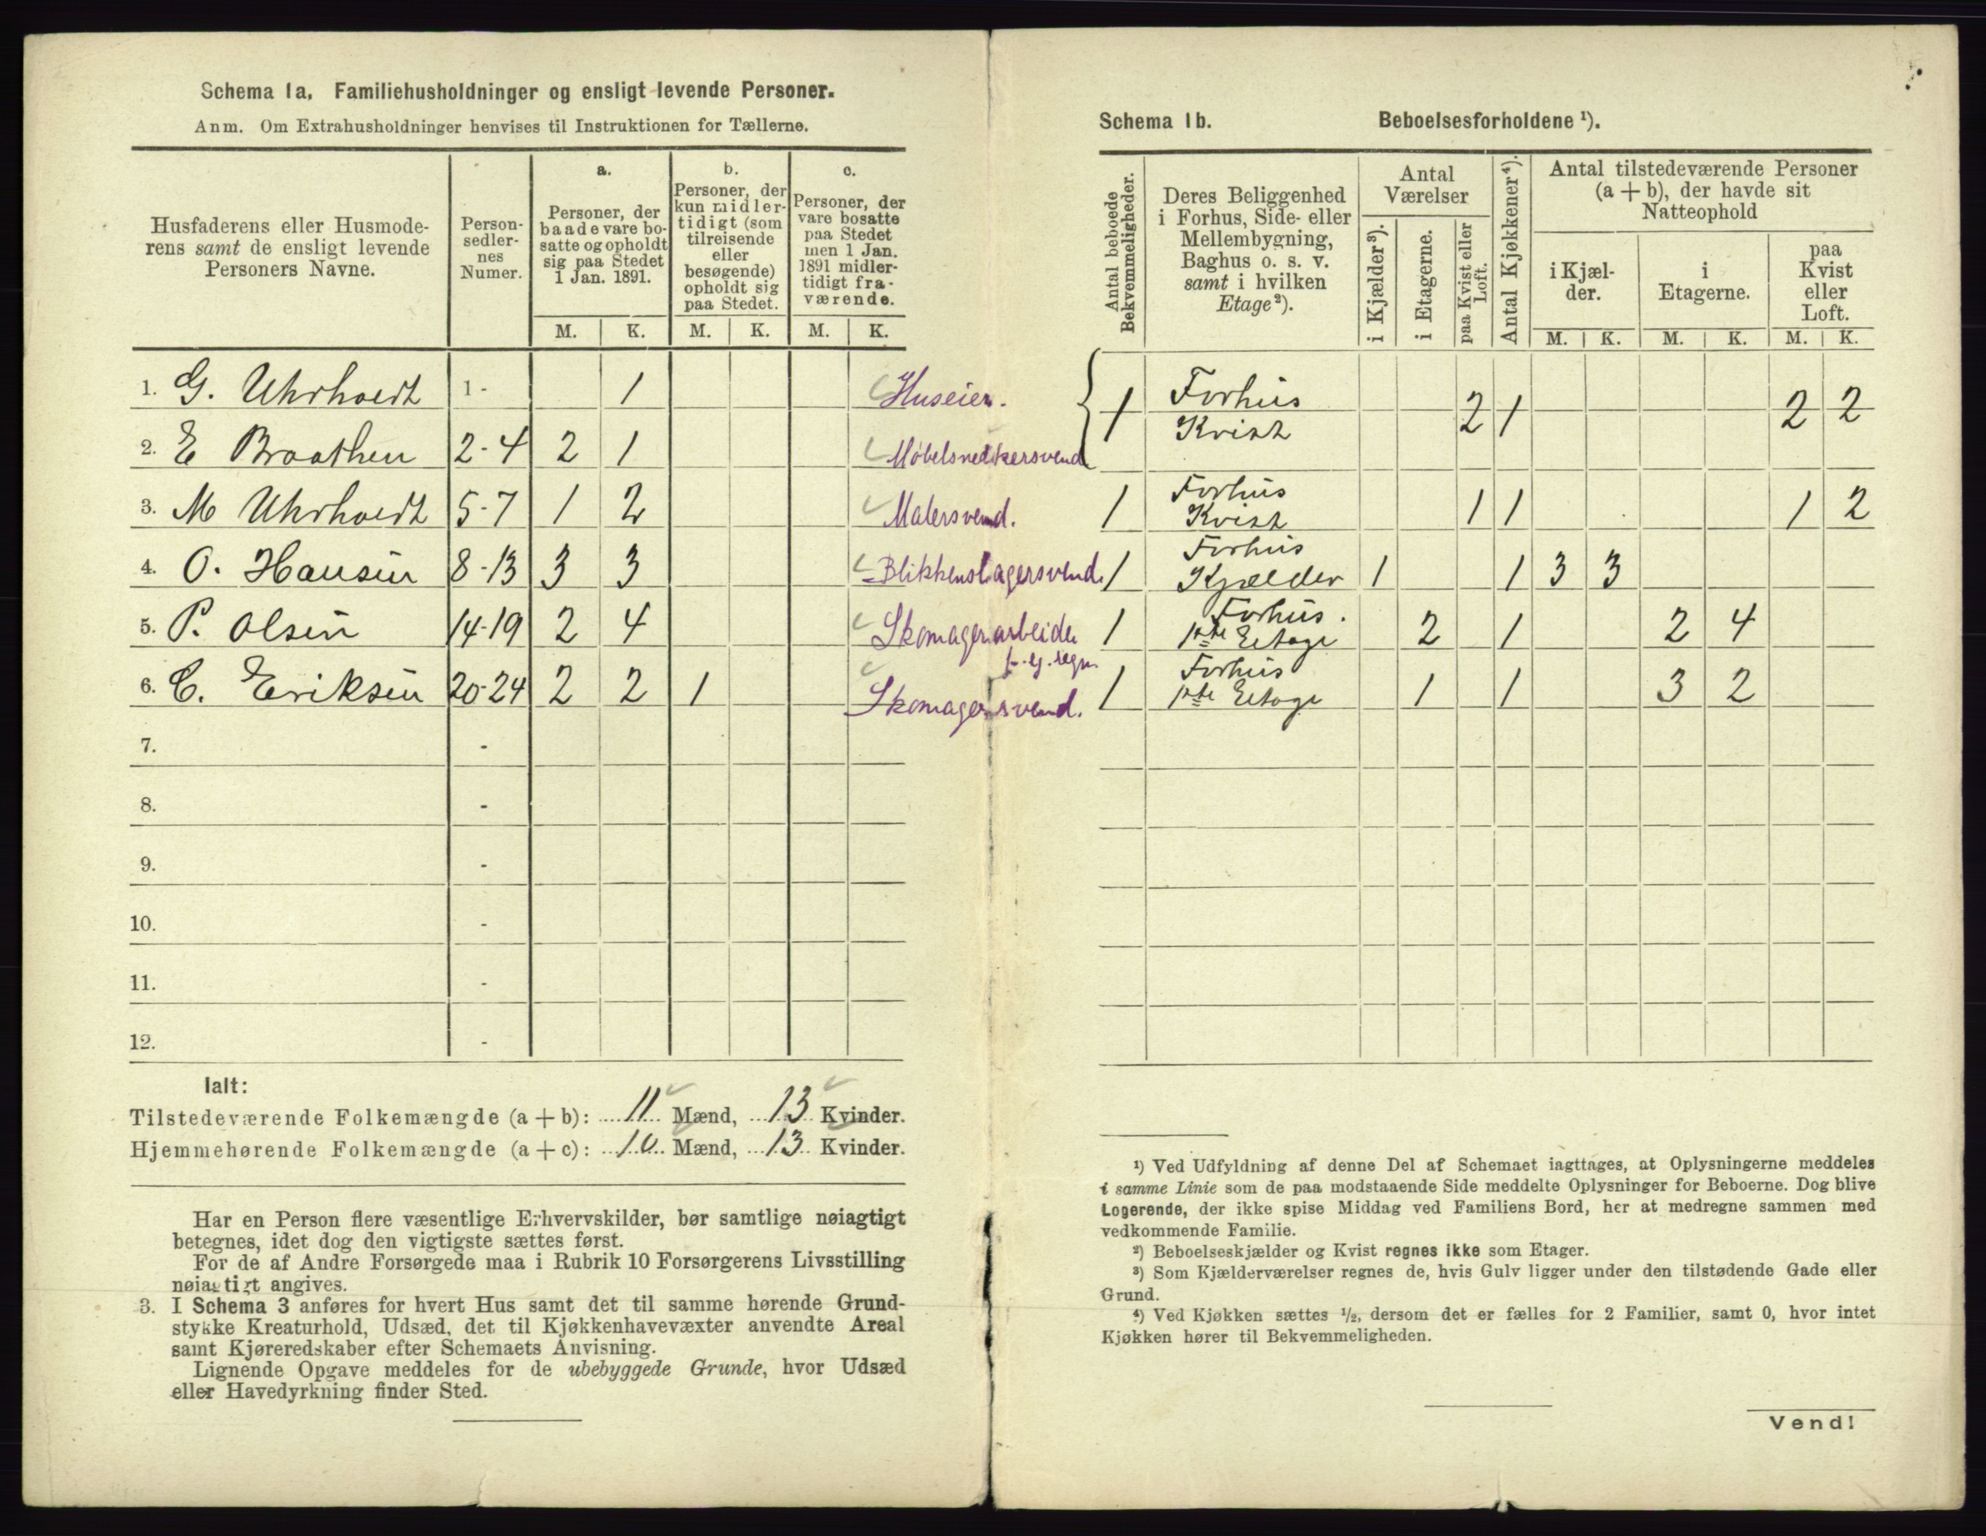 Schema 1a. Familiehusholdninger og ensligt levende Personer.
Anm. Om Extrahusholdninger henvises til Instruktionen for Tællerne.
Husfaderens eller Husmoderens samt de ensligt levende Personers Navne.
Personsedlernes Numer.
a.
Personer, der baade vare bosatte og opholdt sig paa Stedet 1 Jan. 1891.
b.
Personer, der kun midlertidigt (som tilreisende eller besøgende) opholdt sig paa Stedet.
c.
Personer, der vare bosatte paa Stedet men 1 Jan. 1891 midlertidigt fraværende.
M. K. M. K. M. K.
1. G. Uhrhoedt 1- 1 Huseier.
2. E Braathen 2-4 2 1 Møbelsnedkersvend
3. M Uhrhoedt 5-7 1 2 Malersvend.
4. O. Hansen 8-13 3 3 Blikkenslagersvend.
5. P. Olsen 14-19 2 4 Skomagerarbeider
f. eg. regn.
6. C. Eriksen 20-24 2 2 1 Skomagersvend.
7. -
8. -
9. -
10. -
11. -
12. -
Ialt:
Tilstedeværende Folkemængde (a + b): 11 Mænd, 13 Kvinder.
Hjemmehørende Folkemængde (a + c): 10 Mænd, 13 Kvinder.
Har en Person flere væsentlige Erhvervskilder, bør samtlige nøiagtigt
betegnes, idet dog den vigtigste sættes først.
For de af Andre Forsørgede maa i Rubrik 10 Forsørgerens Livsstilling
nøiagtigt angives.
3. I Schema 3 anføres for hvert Hus samt det til samme hørende Grund-
stykke Kreaturhold, Udsæd, det til Kjøkkenhavevæxter anvendte Areal
samt Kjøreredskaber efter Schemaets Anvisning.
Lignende Opgave meddeles for de ubebyggede Grunde, hvor Udsæd
eller Havedyrkning finder Sted.
Schema 1b. Beboelsesforholdene ¹).
Antal beboede Bekvemmeligheder.
Deres Beliggenhed i Forhus, Side- eller Mellembygning, Baghus o. s. v. samt i hvilken Etage²).
Antal Værelser
i Kjælder³).
i Etagerne.
paa Kvist eller Loft.
Antal Kjøkkener⁴).
Antal tilstedeværende Personer (a + b), der havde sit Natteophold
i Kjælder.
i Etagerne.
paa Kvist eller Loft.
M. K. M. K. M. K.
1 Forhus Kvist 2 1 2 2
1 Forhus Kvist 1 1 1 2
1 Forhus Kjælder 1 1 3 3
1 Forhus. 1ste Etage 2 1 2 4
1 Forhus 1ste Etage 1 1 3 2
¹) Ved Udfyldning af denne Del af Schemaet iagttages, at Oplysningerne meddeles
i samme Linie som de paa modstaaende Side meddelte Oplysninger for Beboerne. Dog blive
Logerende, der ikke spise Middag ved Familiens Bord, her at medregne sammen med
vedkommende Familie.
²) Beboelseskjælder og Kvist regnes ikke som Etager.
³) Som Kjælderværelser regnes de, hvis Gulv ligger under den tilstødende Gade eller
Grund.
⁴) Ved Kjøkken sættes ½, dersom det er fælles for 2 Familier, samt 0, hvor intet
Kjøkken hører til Bekvemmeligheden.
Vend!